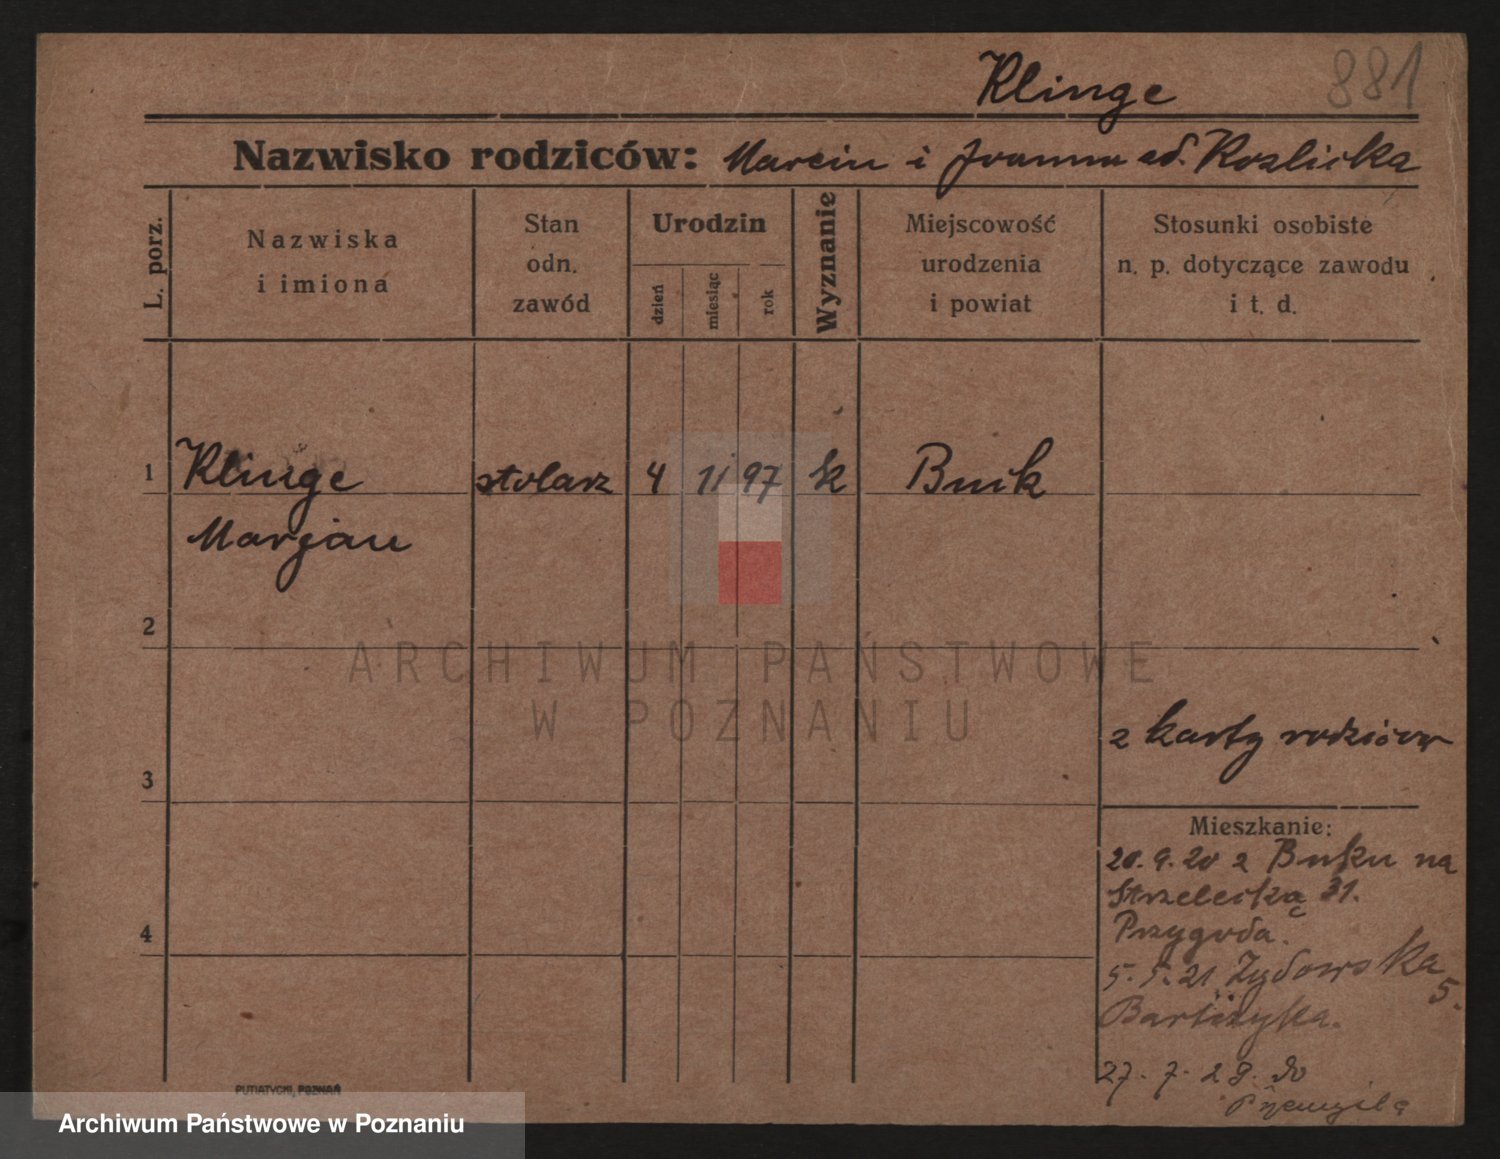 Klinge 881
Nazwisko rodziców: Marcin i Joanna ed. Kozlicka
L. porz.
Nazwiska
i imiona
Stan
odn.
zawód
Urodzin
dzień
miesiąc
rok
Wyznanie
Miejscowość
urodzenia
i powiat
Stosunki osobiste
n. p. dotyczące zawodu
i t. d.
1 Klinge stolarz 4 11 97 k Buk
Marjan
2
ARCHIWUM PAŃSTWOWE
W POZNANIU
z karty rodziców
3
Mieszkanie:
20. 9. 20 z Buku na
Strzelecką 31.
Przygoda.
4
5. 5. 21 Żydowska 5.
27. 7. 28. do
Przemyśla
PUTIATYCKI, POZNAŃ
Archiwum Państwowe w Poznaniu